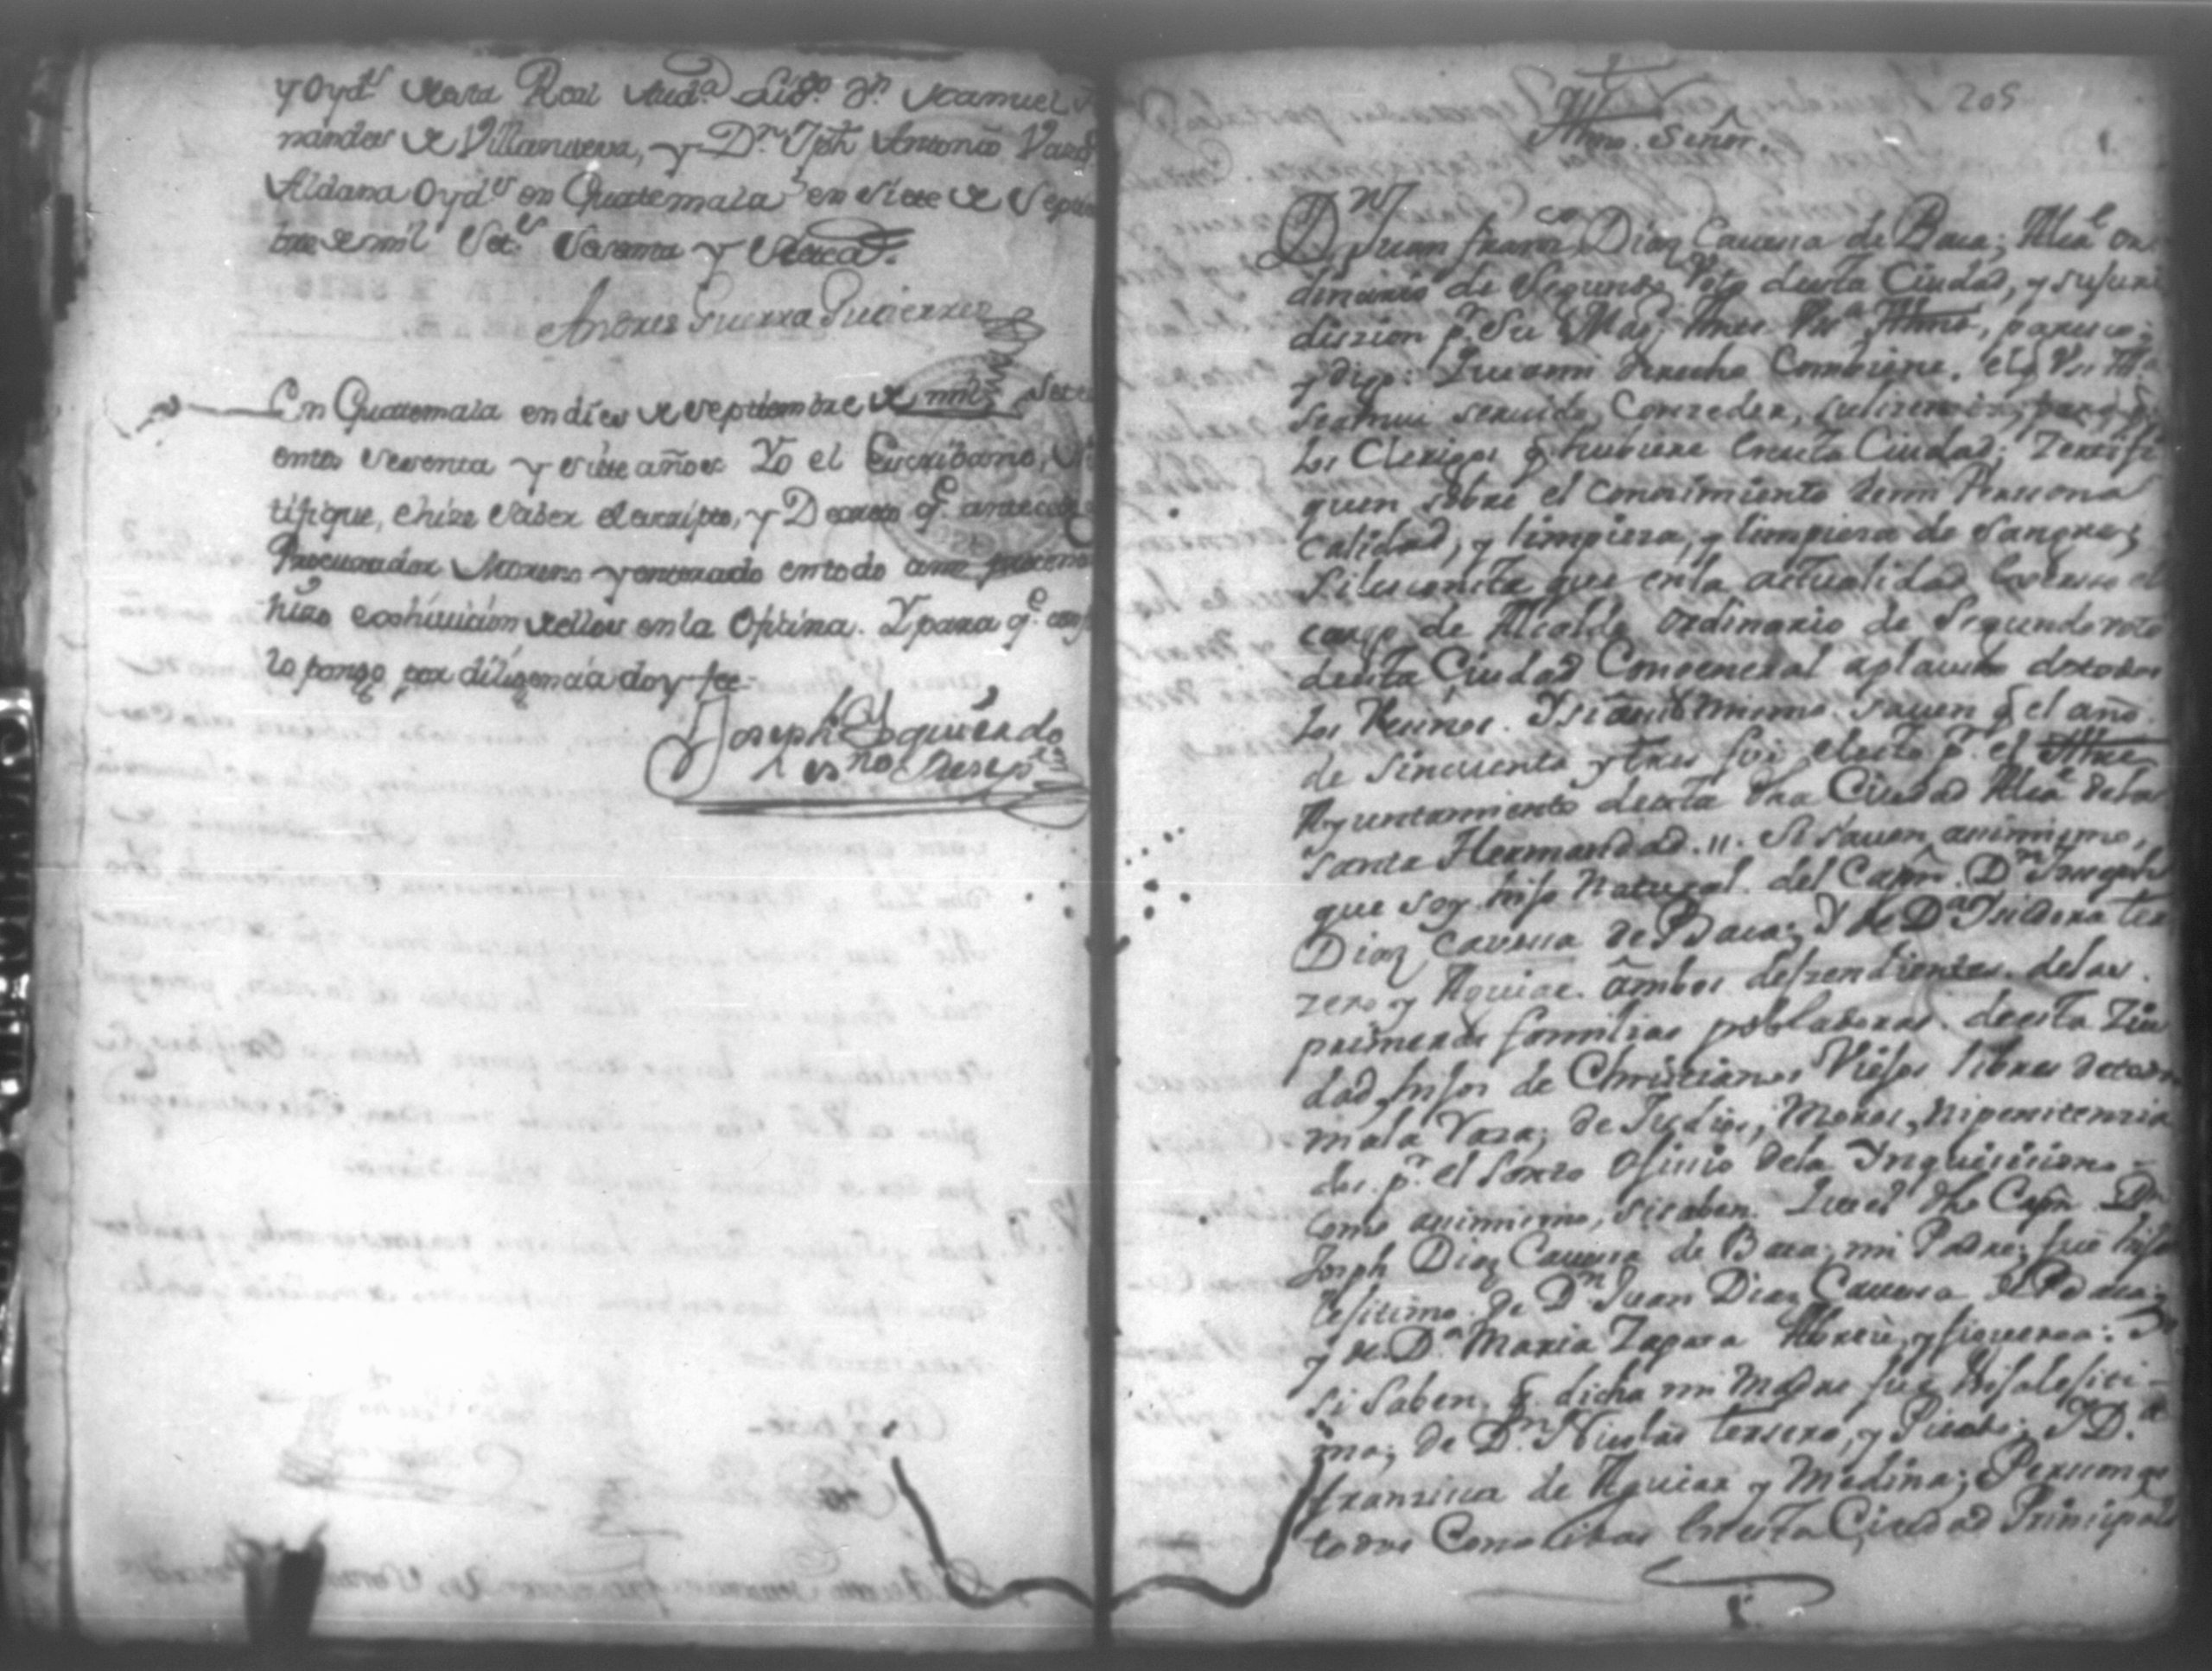 y Oyd.r desta Real Aud.a Lic.do D.n Manuel
nandes de Villanueva, y D.n Jph Antonio
Aldana Oyd.r en Guatemala en siete de Septiem
bre de mil Set.s Sesenta y Siete.
Andres Guerra Gutierrez
En Guatemala en dies de septiembre de mil Sete
entos Sesenta y siete años Yo el Escribano,
tifique, e hize Saber el escripto, y Decreto q.e antecede
Procurador Moreno y enterado en todo
hizo exhivicion dellos en la Oficina. Y para q.e cons
lo pongo por diligencia doy fee
Joseph Ysquierdo
es.no
205
Yllmo. Señor.
D.n Juan Fran.co Diaz Cavesa de Baca; Alca.e or
dinario de Segundo Voto desta Ciudad, y su juri
dizion p.r Su Mag. Ante Vs.a Yllma, paresco;
y digo: Que a mi derecho Combiene, el q Vs.a
sea mui servido, Conzeder, su lizencia, para q.
los Clerigos q hubiere en esta Ciudad; Zertifi
quen sobre el conosimiento de mi Persona
calidad, y limpieza, y limpieza de Sangre;
Si les consta que en la actualidad Exerso el
cargo de Alcalde ordinario de Segundo voto
desta Ciudad Con general aplauso de todos
los Vesinos. Y si asimismo, saven q el año
de sincuenta y tres fui electo p.r el Yltre
Ayuntamiento desta dha Ciudad Alca.e de la
Santa Hermandad. Si saven asimismo,
que soy hijo Natural del Capn. D.n Joseph
Diaz Cavesa de Baca; Y de D.a Ysidora ter
zero y Aguiar. ambos deszendientes de las
primeras familias pobladoras desta Ziu
dad, hijos de Christianos Viejos libres de toda
mala Raza; de Judios, Moros, ni penitenzia
dos p.r el Santo Ofisio de la Ynquisicion
como asimismo, si saben. Que el dho Capn. D.n
Joseph Diaz Cavesa de Baca; mi Padre; fue hijo
lejitimo de D.n Juan Diaz Cavesa de Baca;
y de D.a Maria Zapata Abreu, y figueroa:
Si Saben, q. dicha mi Madre fue hija lejiti
ma; de D.n Nicolas tersero, y Picado; Y D.a
franzisca de Aguiar y Medina; Personas
todas Conosidas en esta Ciudad Prinzipales